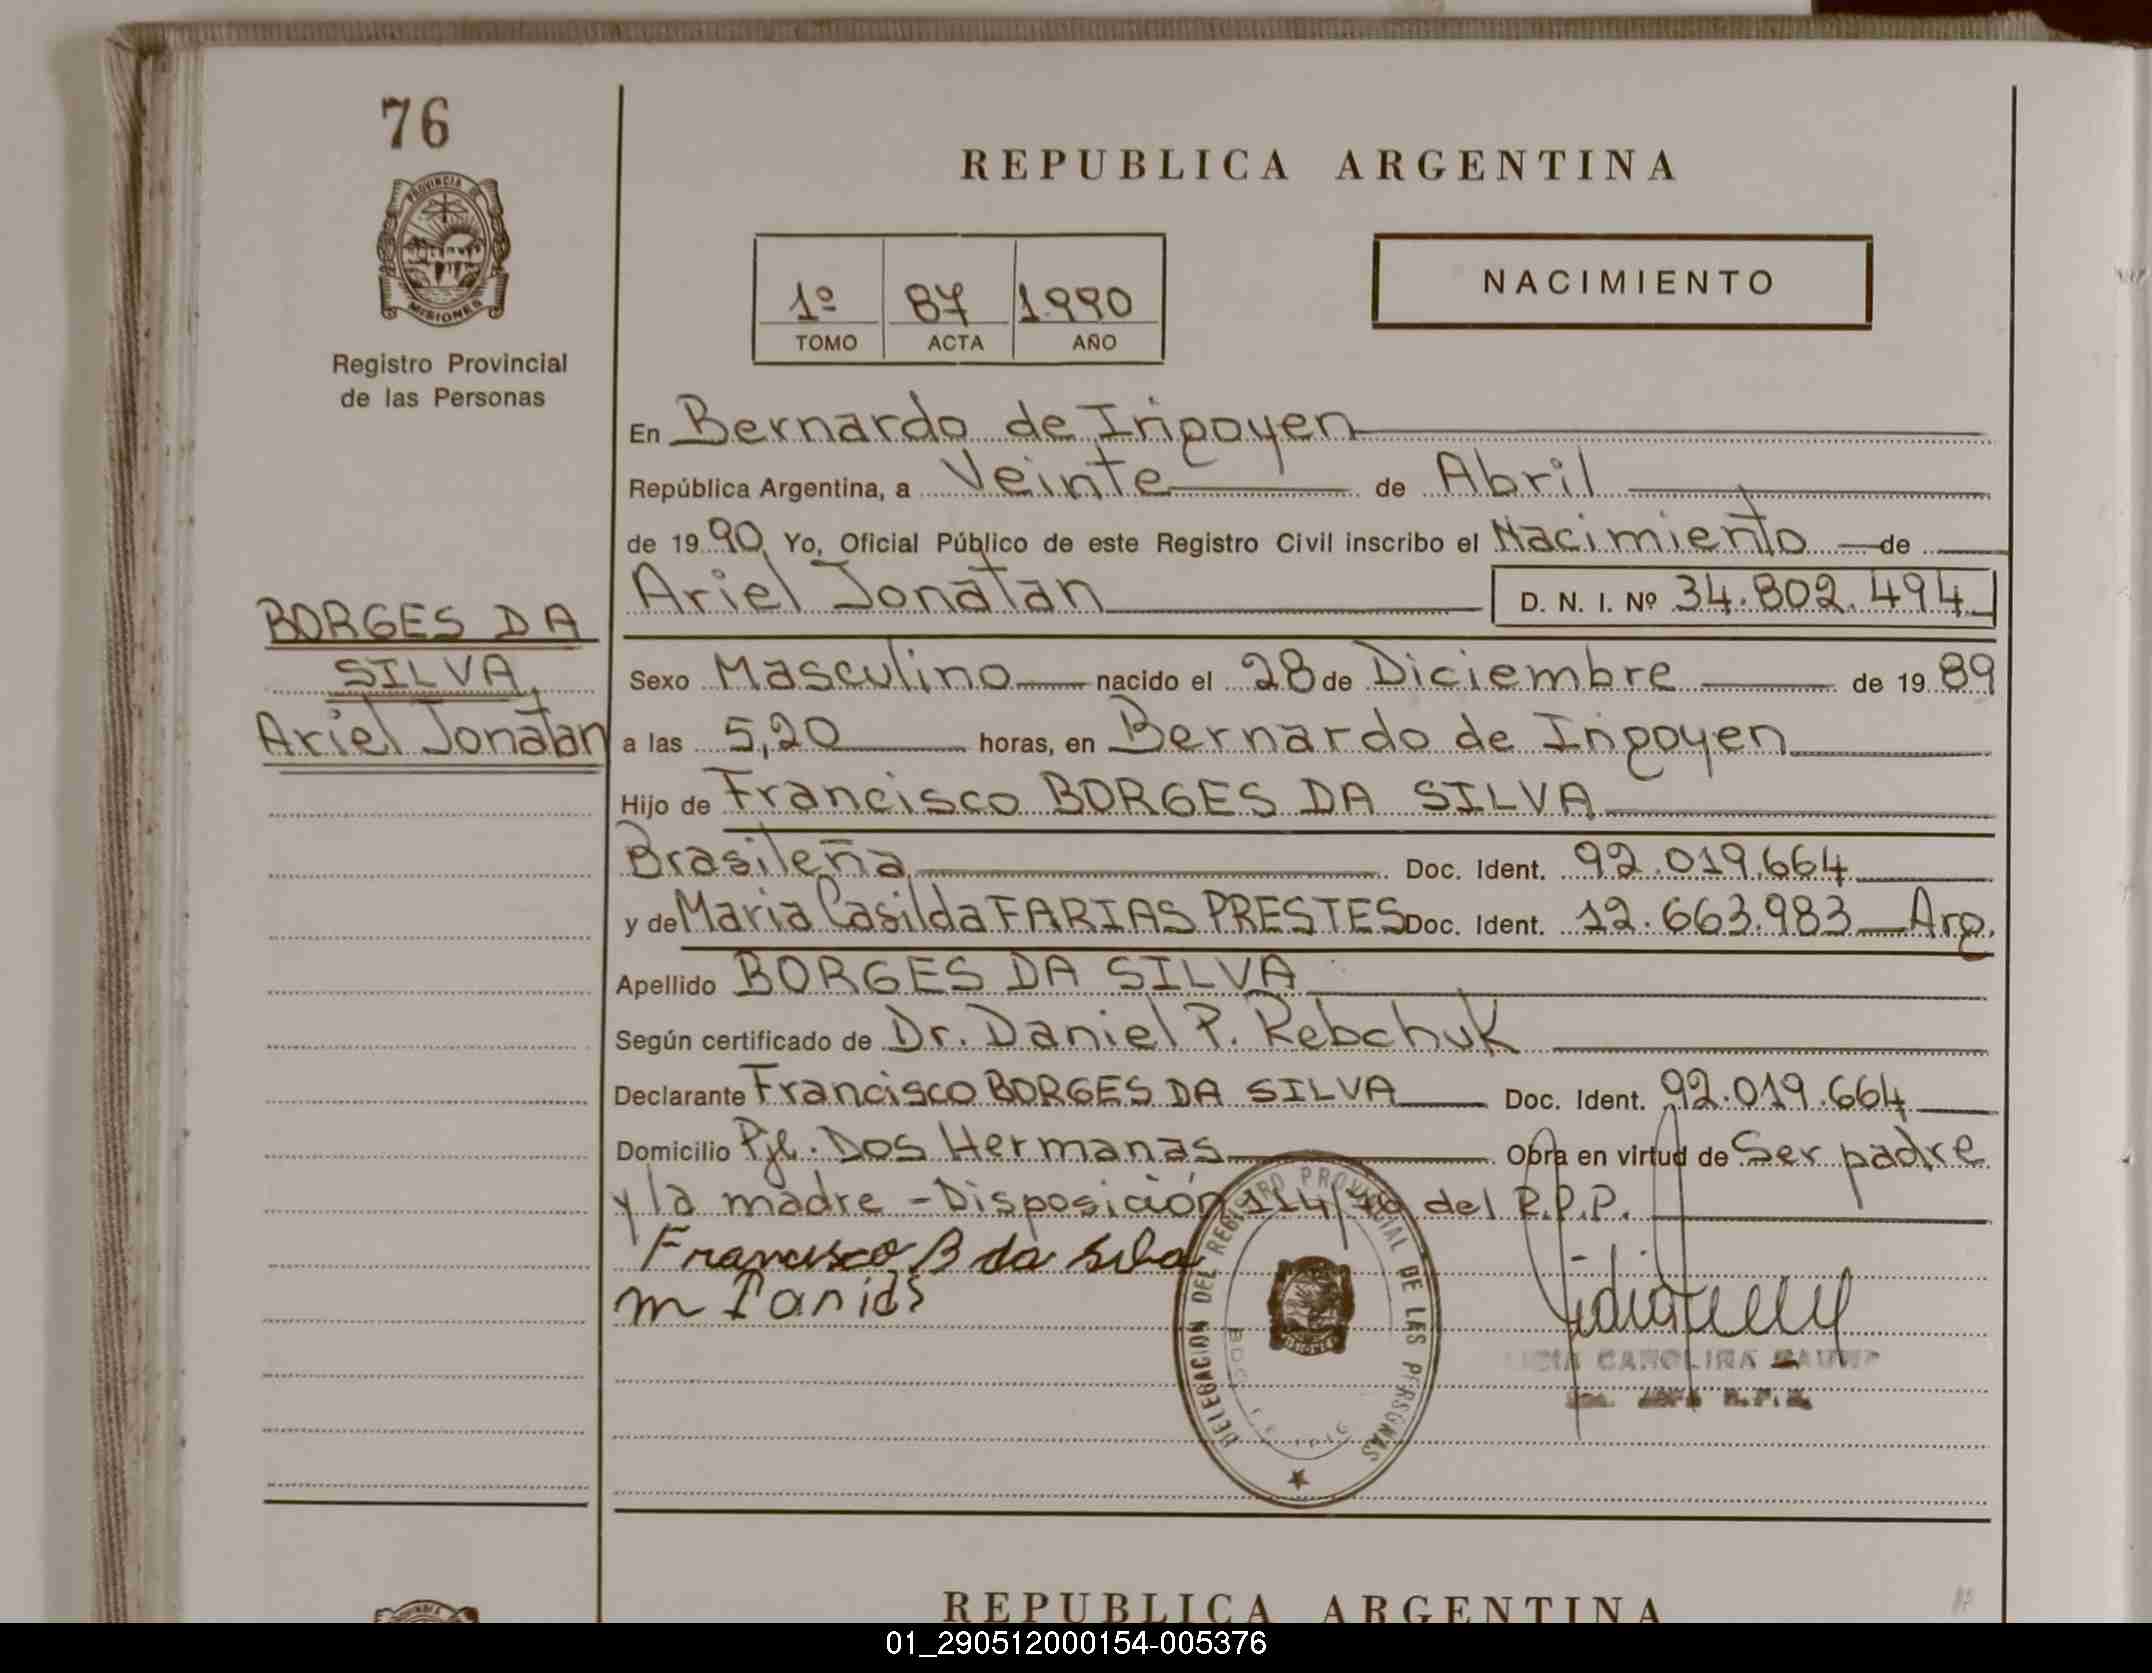 76
PROVINCIA DE
MISIONES
Registro Provincial
de las Personas
REPUBLICA ARGENTINA
1º 87 1.990
TOMO ACTA AÑO
NACIMIENTO
En Bernardo de Irigoyen
República Argentina, a Veinte de Abril
de 19 90 Yo, Oficial Público de este Registro Civil inscribo el Nacimiento de
Ariel Jonatan D. N. I. Nº 34.802.494
BORGES DA
SILVA,
Ariel Jonatan
Sexo Masculino nacido el 28 de Diciembre de 19 89
a las 5,20 horas, en Bernardo de Irigoyen
Hijo de Francisco BORGES DA SILVA
Brasileña Doc. Ident. 92.019.664
y de Maria Casilda FARIAS PRESTES Doc. Ident. 12.663.983 Arg.
Apellido BORGES DA SILVA
Según certificado de Dr. Daniel P. Rebchuk
Declarante Francisco BORGES DA SILVA Doc. Ident. 92.019.664
Domicilio Pje. Dos Hermanas Obra en virtud de Ser padre
y la madre - Disposición 114/ del R.P.P.
Francisco B da Silva
DELEGACION DEL REGISTRO PROVINCIAL DE LAS PERSONAS
CAROLINA
REPUBLICA ARGENTINA
01_290512000154-005376